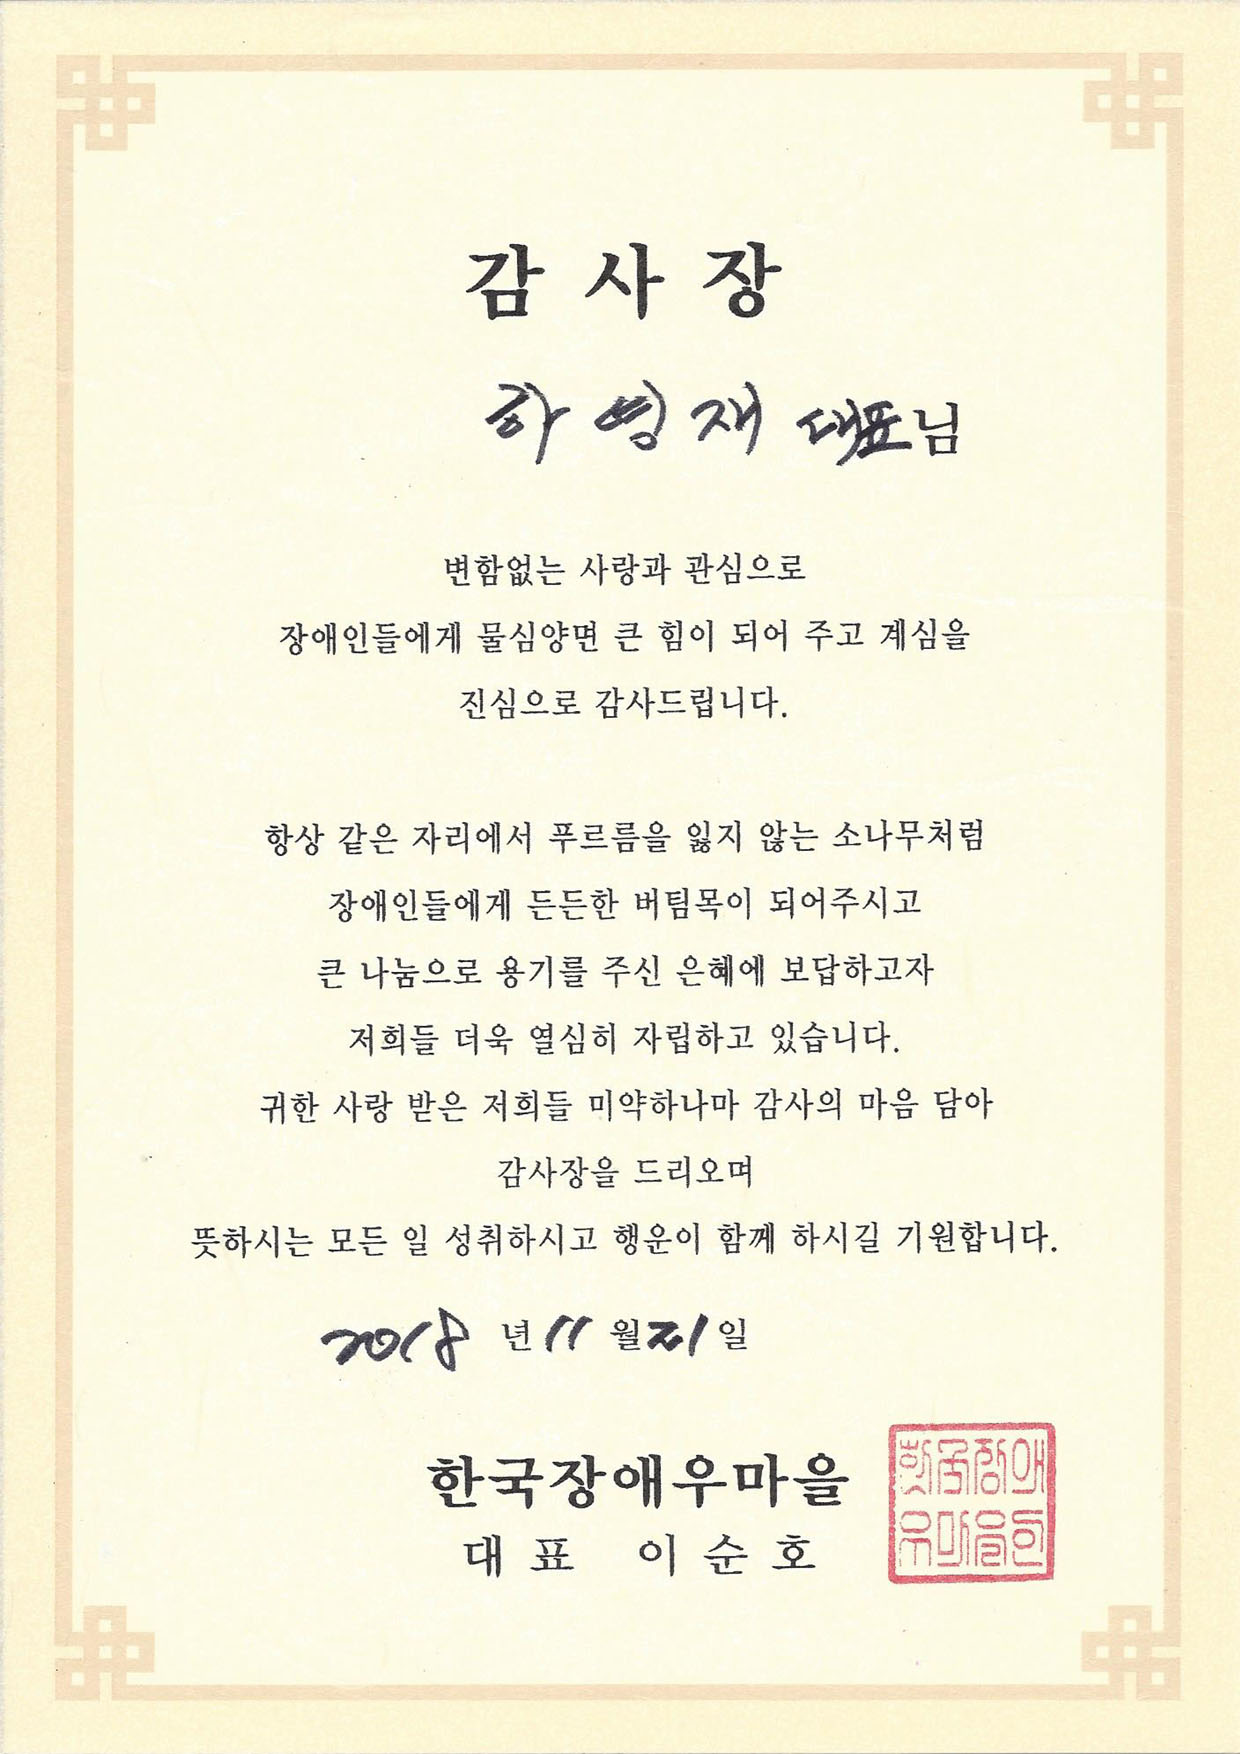 감 사 장
하 영 재 대표님
변함없는 사랑과 관심으로
장애인들에게 물심양면 큰 힘이 되어 주고 계심을
진심으로 감사드립니다.
항상 같은 자리에서 푸르름을 잃지 않는 소나무처럼
장애인들에게 든든한 버팀목이 되어주시고
큰 나눔으로 용기를 주신 은혜에 보답하고자
저희들 더욱 열심히 자립하고 있습니다.
귀한 사랑 받은 저희들 미약하나마 감사의 마음 담아
감사장을 드리오며
뜻하시는 모든 일 성취하시고 행운이 함께 하시길 기원합니다.
2018 년 11 월 21 일
한국장애우마을
대 표 이 순 호
한국장애
우마을인